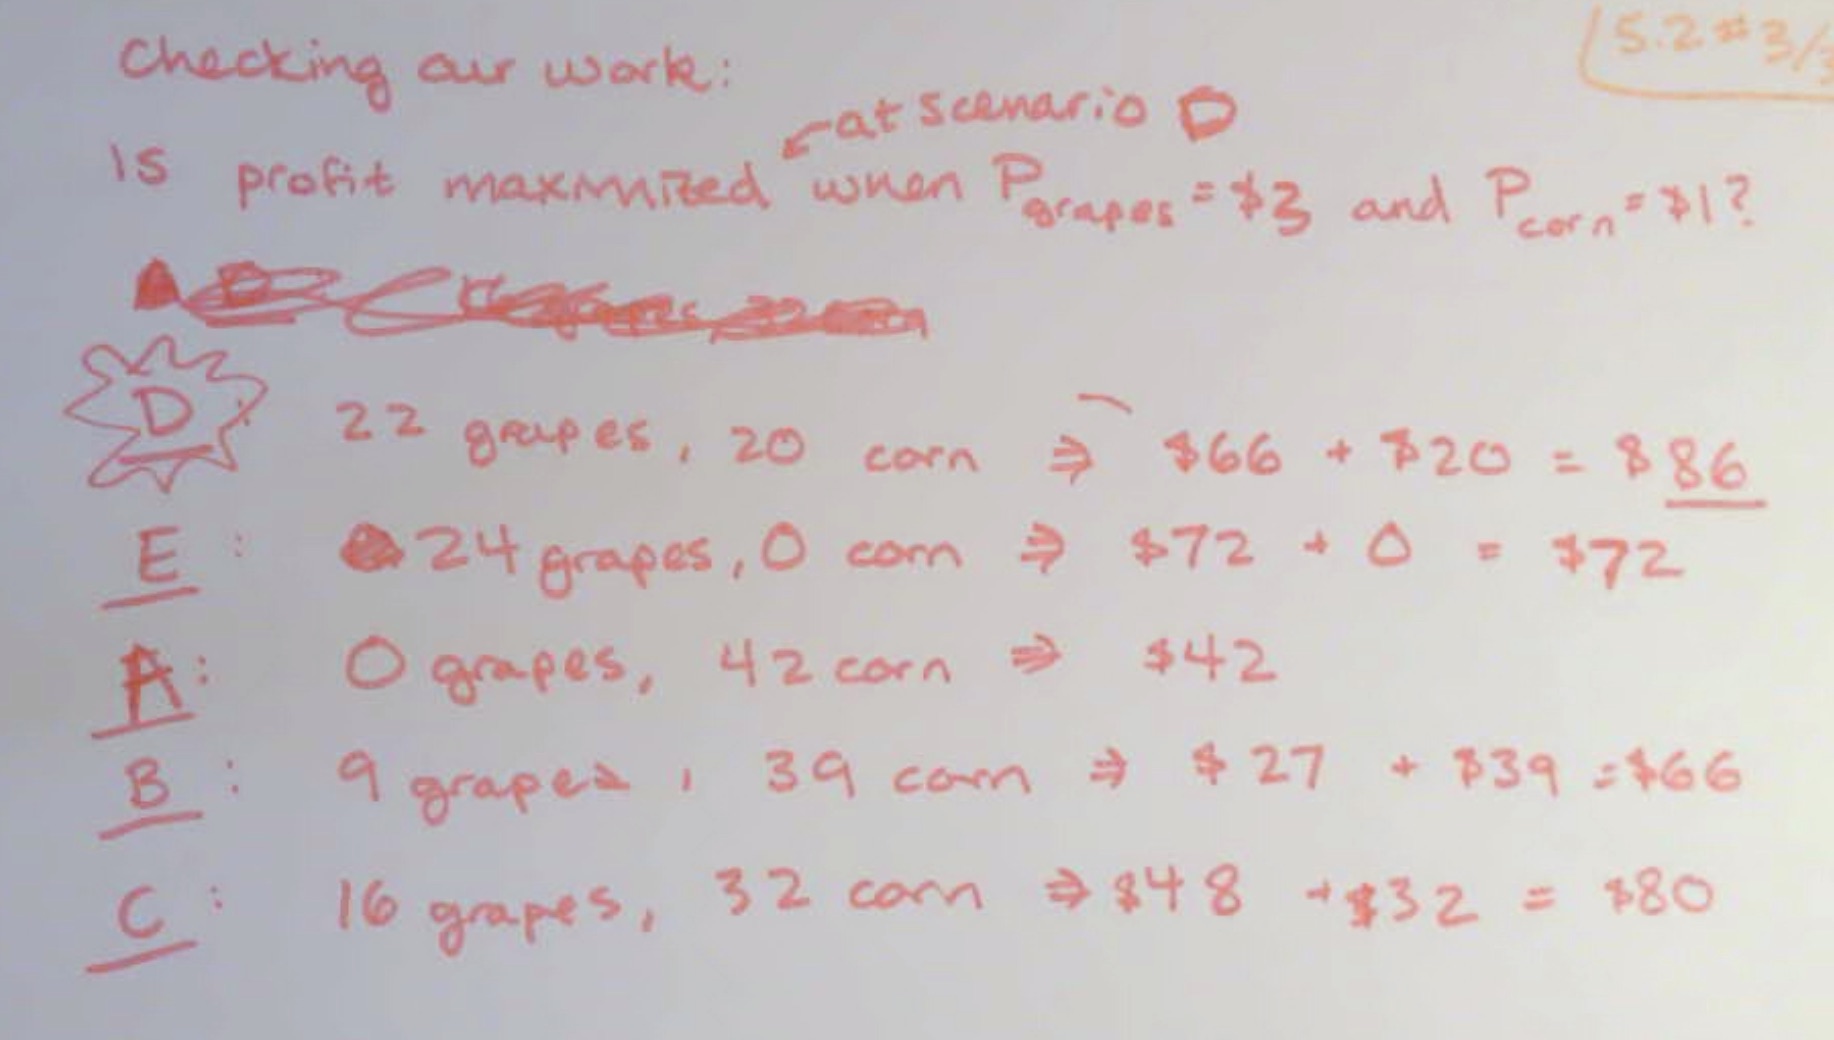 Checking our work:
5.2 #3/3
at scenario D
Is profit maximized when P grapes = $3 and P corn = $1?
D: 22 grapes, 20 corn ⇒ $66 + $20 = $86
E: 24 grapes, 0 corn ⇒ $72 + 0 = $72
A: 0 grapes, 42 corn ⇒ $42
B: 9 grapes, 39 corn ⇒ $27 + $39 = $66
C: 16 grapes, 32 corn ⇒ $48 + $32 = $80